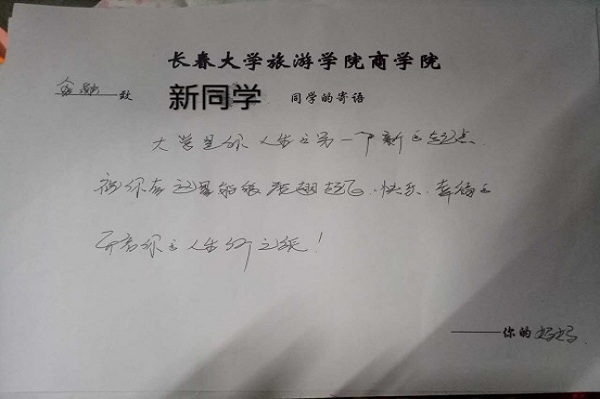 长春大学旅游学院商学院
致 新同学 同学的寄语
大学是你人生之另一个新的起点
祝你在这里能展翅起飞、快乐、幸福的
开启你的人生新之旅!
——你的妈妈